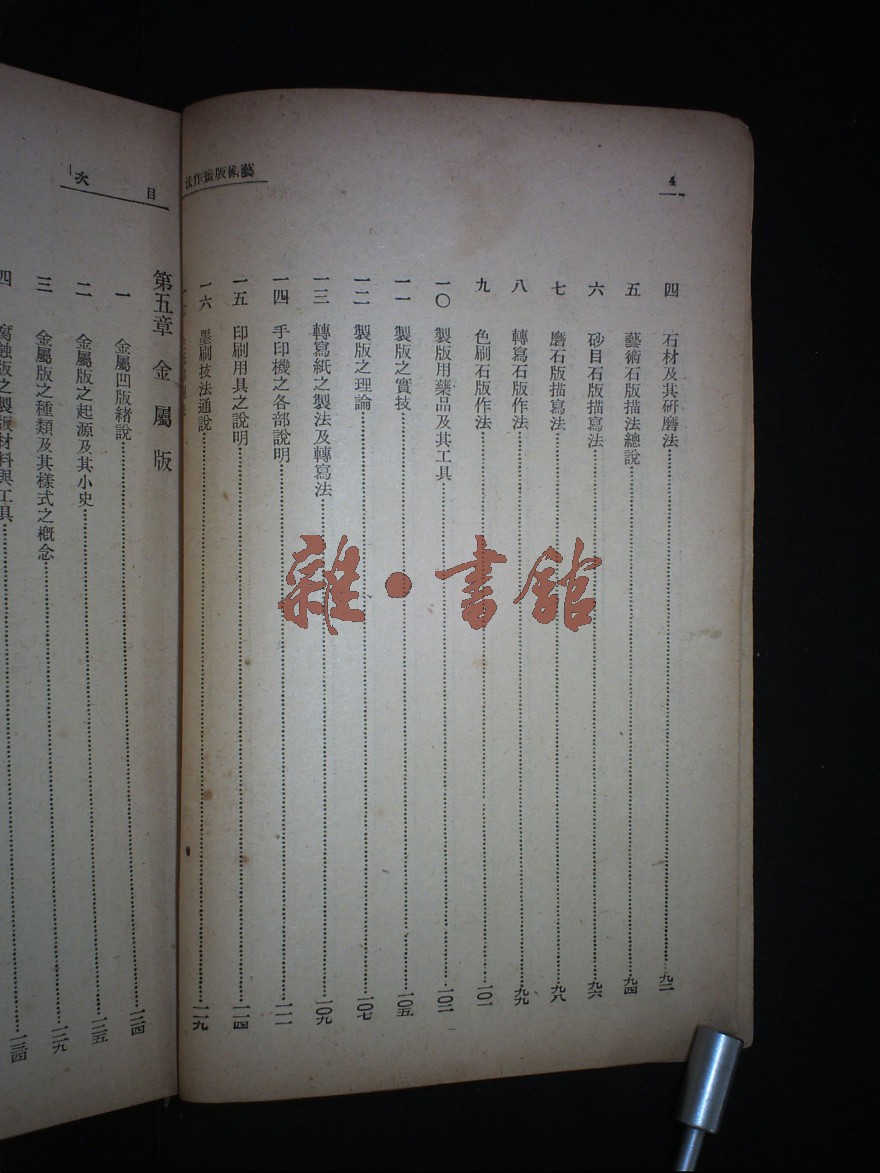 4
藝術版畫作法
四 石材及其研磨法 九二
五 藝術石版描法總說 九四
六 砂目石版描寫法 九六
七 磨石版描寫法 九八
八 轉寫石版作法 九九
九 色刷石版作法 一〇一
一〇 製版用藥品及其工具 一〇二
一一 製版之實技 一〇五
一二 製版之理論 一〇七
一三 轉寫紙之製法及轉寫法 一〇九
一四 手印機之各部說明 一一一
一五 印刷用具之說明 一一四
一六 墨刷技法通說 一一九
目次
第五章 金屬版
一 金屬凹版緒說 一二四
二 金屬版之起源及其小史 一二五
三 金屬版之種類及其樣式之概念 一二九
四 腐蝕版之製版材料與工具 一三四
雜·書館